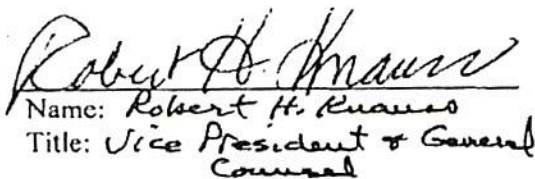 Robert H. Knauss
Name: Robert H. Knauss
Title: Vice President & General
Counsel